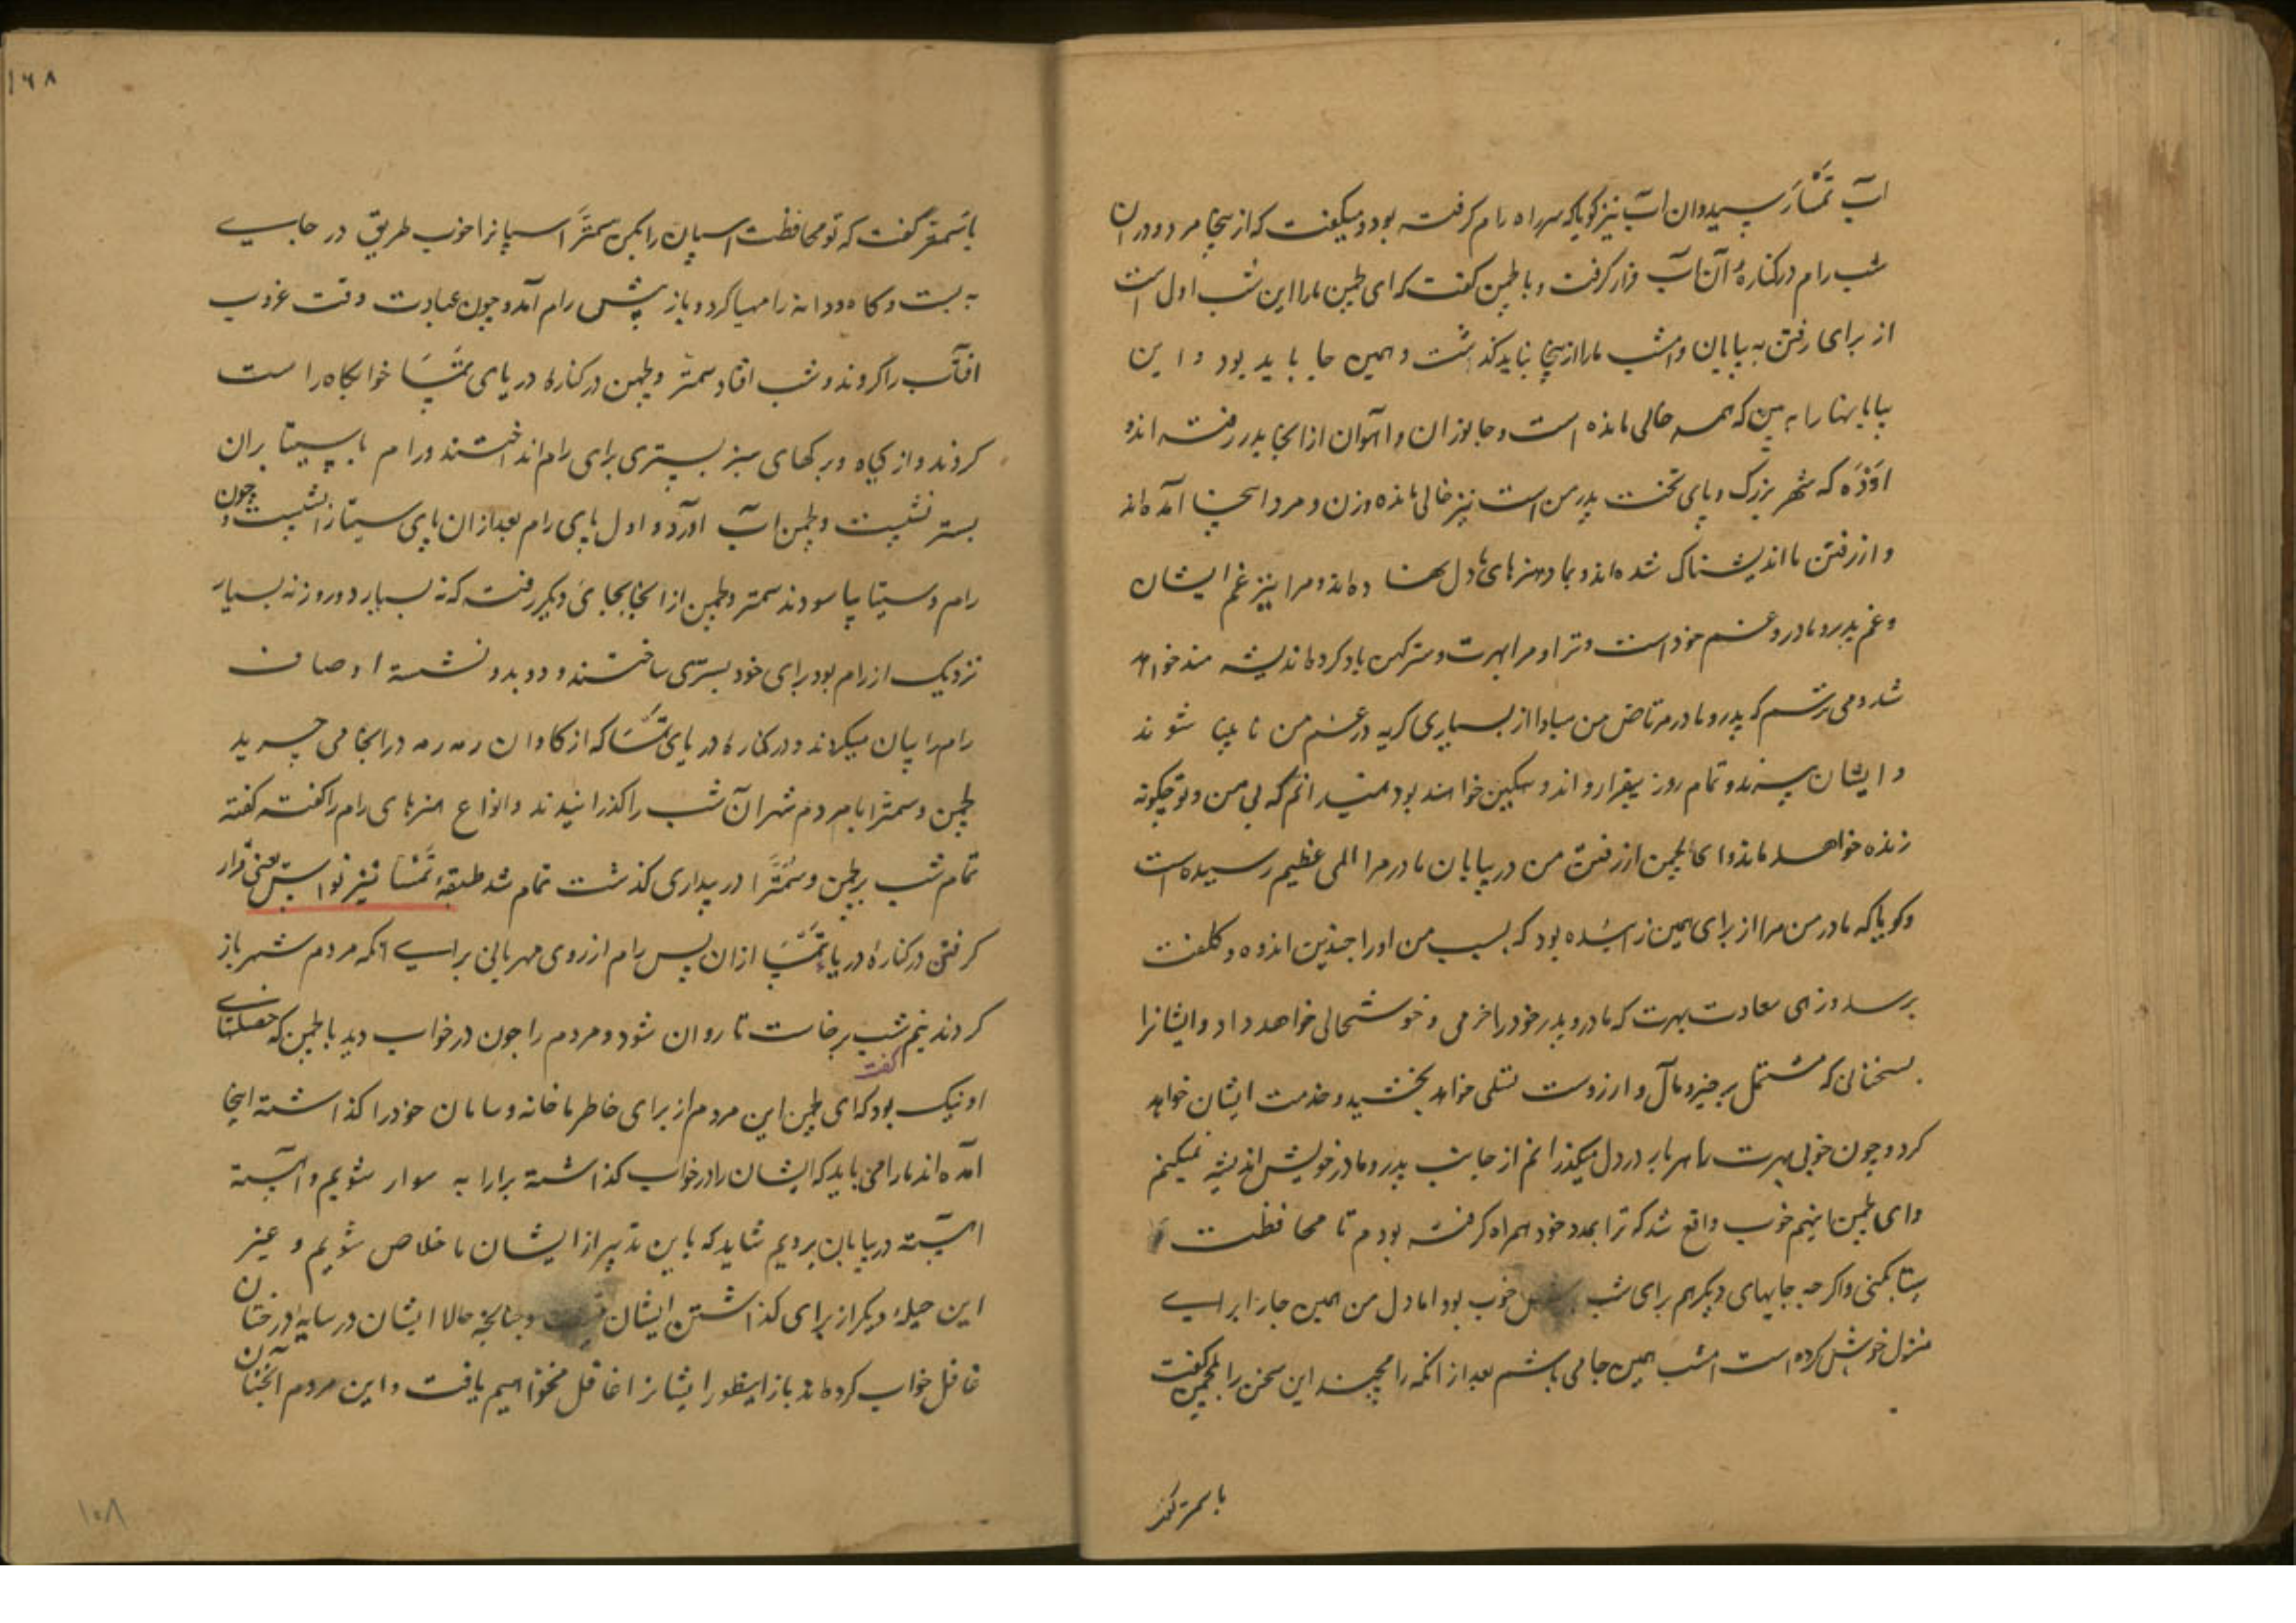 آب تمسا رسید و آن آب نیز گویا که سر راه رام گرفته بود و میگفت که از اینجا مرو و در آن
شب رام در کنارهٔ آن آب قرار گرفت و با لچمن گفت که ای لچمن ما را این شب اول است
از برای رفتن به بیابان و امشب ما را از اینجا نباید گذشت و همین جا باید بود و این
بیابانها را به بین که همه خالی مانده است و جانوران و آهوان از اینجا بدر رفته اند و
اوده که شهر بزرک و پای تخت پدر من است نیز خالی مانده و زن و مرد اینجا آمده اند
و از رفتن ما اندیشناک شده اند و بما و هنرهای ما دل نهاده اند و مرا نیز غم ایشان
و غم پدر و مادر و غم خود است و ترا و مرا بهرت و سترکهن یاد کرده اندیشه مند خواهد
شد و می ترسم که پدر و مادر مرتاض من مبادا از بسیاری گریه در غم من نا بینا شوند
و ایشان پیرند و تمام روز بیقرار و اندوهگین خواهند بود نمیدانم که بی من و تو چگونه
زنده خواهند ماند و ای لچمن از رفتن من در بیابان مادر مرا المی عظیم رسیده است
و گویا که مادر من مرا از برای همین زائیده بود که بسبب من او را چندین اندوه و کلفت
برسد و زهی سعادت بهرت که مادر و پدر خود را خرمی و خوشحالی خواهد داد و ایشانرا
بسخنانی که مشتمل بر خیر و مال و آرزوست تسلی خواهد بخشید و خدمت ایشان خواهد
کرد و چون خوبی بهرت را هر بار در دل میگذرانم از جانب پدر و مادر خویش اندیشه نمیکنم
و ای لچمن اینهم خوب واقع شد که ترا بمدد خود همراه گرفته بودم تا محافظت
سیتا بکنی و اگرچه جایهای دیگر هم برای شب خوب بود اما دل من همین جا را برای
منزل خوش کرده است امشب همین جا می باشم بعد از آنکه رامچند این سخن را بلچمن گفت
با سمتر گفت
۱۶۸
با سمتر گفت که تو محافظت اسپان را بکن سمترا اسپانرا خوب طریق در جایی
به بست و کاه و دانه را مهیا کرد و باز پیش رام آمد و چون عبادت وقت غروب
آفتاب را کردند و شب افتاد سمتر و لچمن در کناره دریای تمسا خوابگاه راست
کردند و از گیاه و برگهای سبز بستری برای رام انداختند و رام با سیتا بران
بستر نشست و لچمن آب آورد و اول پای رام بعد از ان پای سیتا را شست و چون
رام و سیتا بیاسودند سمتر و لچمن از انجا بجای دیگر رفته که نه بسیار دور و نه بسیار
نزدیک از رام بود برای خود بستری ساختند و دو بدو نشسته اوصاف
رام را بیان میکردند و در کناره دریای تمسا که از گاوان رمه رمه در انجا می چرید
لچمن و سمترا با مردم شهر آن شب را گذرانیدند و انواع هنرهای رام را گفته گفته
تمام شب بر لچمن و سمترا در بیداری گذشت تمام شد طبقهٔ تمسا تیر نواس یعنی قرار
گرفتن در کنارهٔ دریای تمسا ازان پس رام از روی مهربانی برای آنکه مردم شهر باز
گردند نیم شب برخاست تا روان شود و مردم را چون در خواب دید با لچمن که خصلتهای
او نیک بود گفت که ای لچمن این مردم از برای خاطر ما خانه و سامان خود را گذاشته اینجا
آمده اند ما را می باید که ایشان را در خواب گذاشته برارابه سوار شویم و آهسته
آهسته در بیابان برویم شاید که باین تدبیر از ایشان ما خلاص شویم و غیر
این حیلهٔ دیگر از برای گذاشتن ایشان نیست و چنانچه حالا ایشان در سایهٔ درختان
غافل خواب کرده اند باز اینطور ایشانرا غافل نخواهیم یافت و این مردم آنچنان
۱۰۸